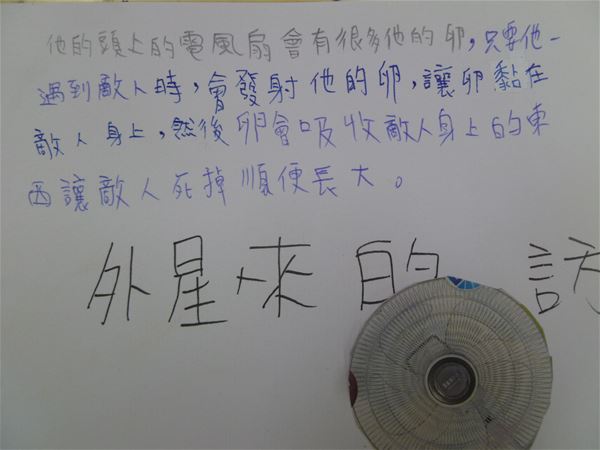 他的頭上的電風扇會有很多他的卵，只要他一
遇到敵人時，會發射他的卵，讓卵黏在
敵人身上，然後卵會吸收敵人身上的東
西讓敵人死掉順便長大。
外星來的